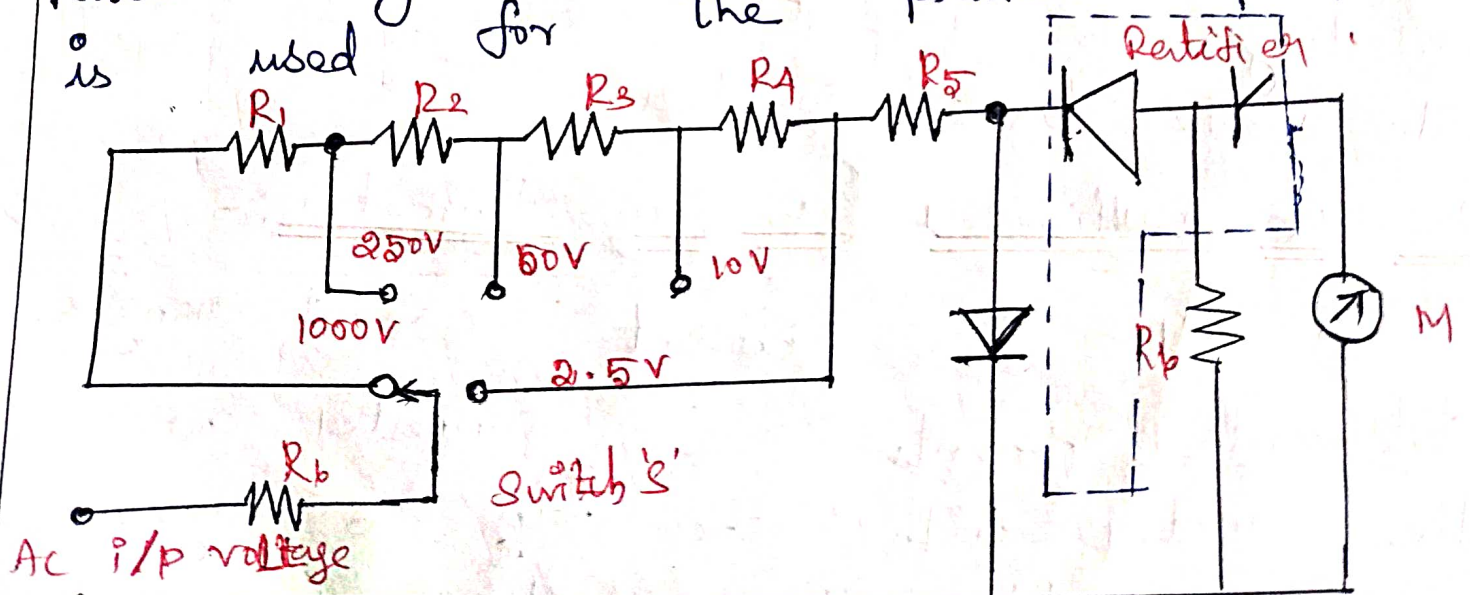 the
is used for
Rectifier
R1 R2 R3 R4 R5
250V 50V 10V
1000V
2.5V
Rb
M
Rb
Switch 'S'
Ac i/p voltage